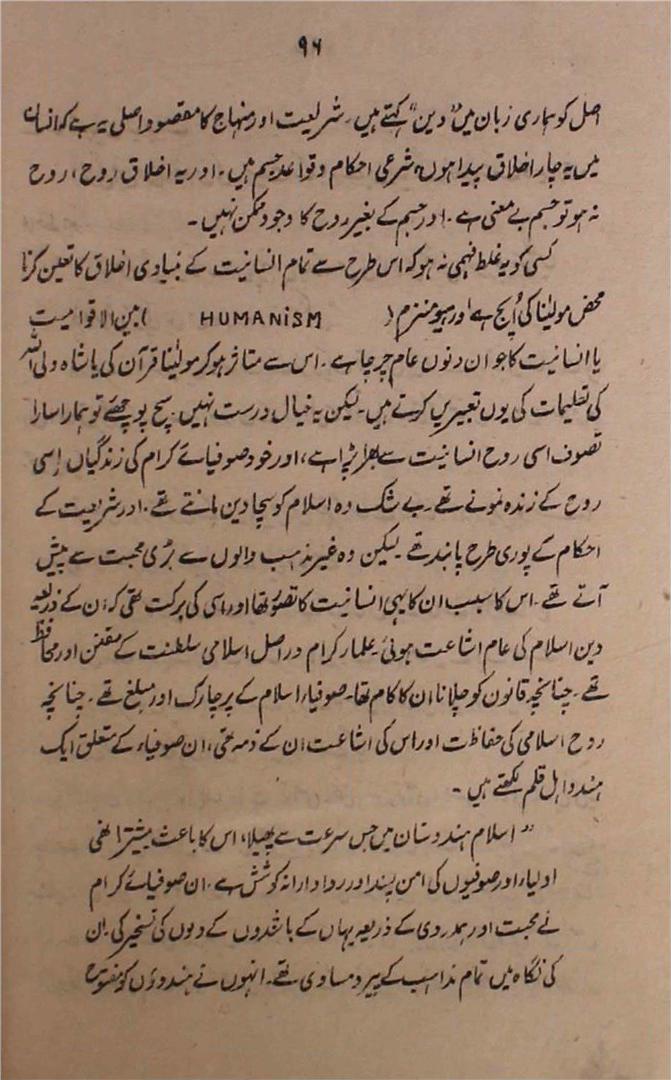 ۹۶
اصل کو ہماری زبان میں "دین" کہتے ہیں۔ شریعت اور منہاج کا مقصود اصلی یہ ہے کہ انسان
میں یہ چار اخلاق پیدا ہوں، شرعی احکام و قواعد جسم ہیں۔ اور یہ اخلاق روح، روح
نہ ہو تو جسم بے معنی ہے۔ اور جسم کے بغیر روح کا وجود ممکن نہیں۔
کسی کو یہ غلط فہمی نہ ہو کہ اس طرح سے تمام انسانیت کے بنیادی اخلاق کا تعین کرنا
محض مولینا کی اُپج ہے اور ہیومنزم (HUMANiSM) بین الاقوامیت
یا انسانیت کا جو ان دنوں عام چرچا ہے۔ اس سے متاثر ہو کر مولینا قرآن کی یا شاہ ولی اللہ
کی تعلیمات کی یوں تعبیریں کرتے ہیں۔ لیکن یہ خیال درست نہیں۔ سچ پوچھئے تو ہمارا سارا
تصوف اسی روح انسانیت سے بھرا پڑا ہے، اور خود صوفیائے کرام کی زندگیاں اِسی
روح کے زندہ نمونے تھے۔ بے شک وہ اسلام کو سچا دین مانتے تھے۔ اور شریعت کے
احکام کے پوری طرح پابند تھے۔ لیکن وہ غیر مذہب والوں سے بڑی محبت سے پیش
آتے تھے۔ اس کا سبب ان کا یہی انسانیت کا تصور تھا اور اسی کی برکت تھی کہ ان کے ذریعہ
دین اسلام کی عام اشاعت ہوئی۔ علمار کرام دراصل اسلامی سلطنت کے مقنن اور محافظ
تھے۔ چنانچہ قانون کو چلانا ان کا کام تھا۔ صوفیاء اسلام کے پرچارک اور مبلغ تھے۔ چنانچہ
روح اسلامی کی حفاظت اور اس کی اشاعت ان کے ذمہ تھی، ان صوفیاء کے متعلق ایک
ہندو اہل قلم لکھتے ہیں۔
"اسلام ہندوستان میں جس سرعت سے پھیلا، اس کا باعث بیشتر انھی
اولیاء اور صوفیوں کی امن پسند اور روادارانہ کوشش ہے۔ ان صوفیائے کرام
نے محبت اور ہمدردی کے ذریعہ یہاں کے باشندوں کے دلوں کی تسخیر کی۔ ان
کی نگاہ میں تمام مذاہب کے پیرو مساوی تھے۔ انہوں نے ہندوؤں کو مفتوح